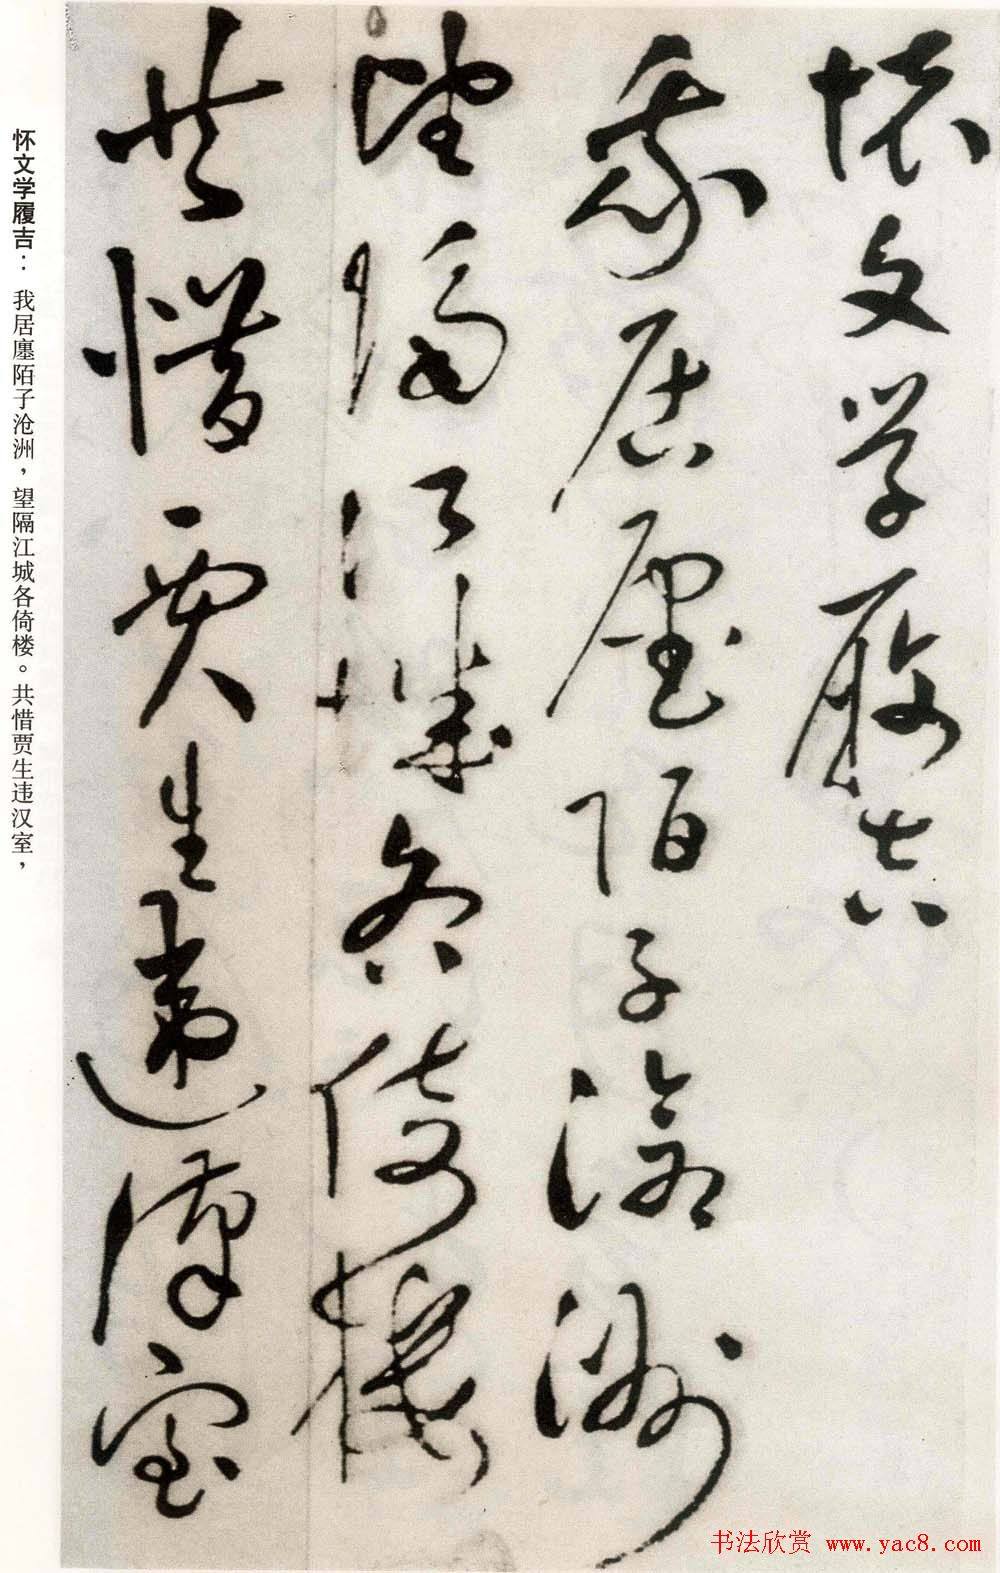 懷文学履吉
我居廛陌子滄洲
望隔江城各倚樓
共惜賈生違漢室
怀文学履吉：我居廛陌子沧洲，望隔江城各倚楼。共惜贾生违汉室，
书法欣赏 www.yac8.com